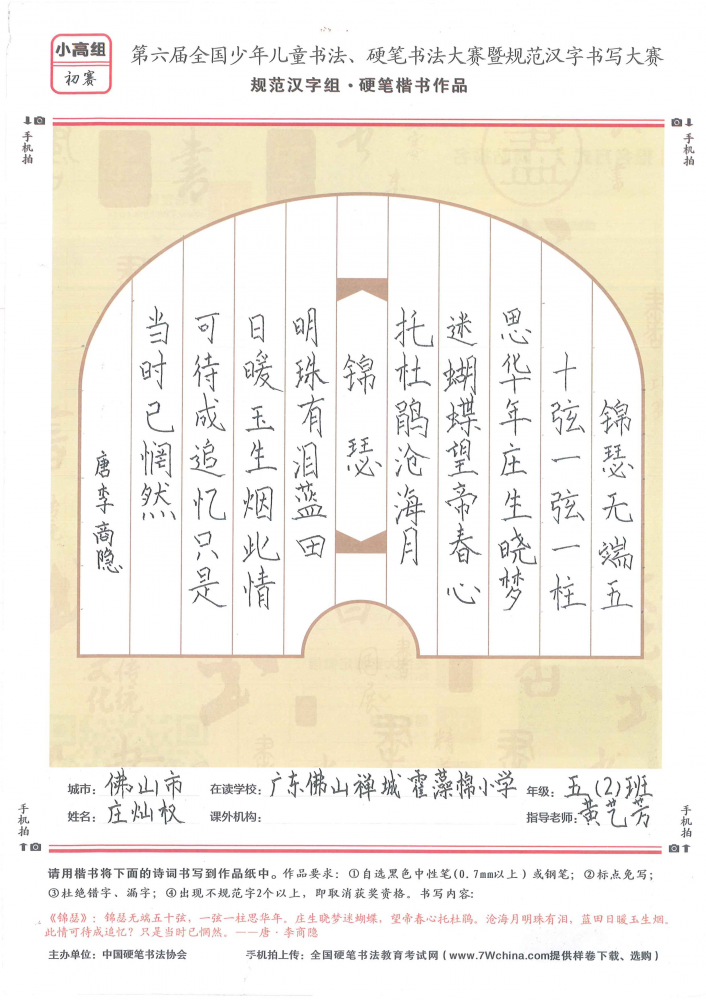 小高组
初赛
第六届全国少年儿童书法、硬笔书法大赛暨规范汉字书写大赛
规范汉字组·硬笔楷书作品
手机拍
手机拍
锦瑟无端五
十弦一弦一柱
思华年庄生晓梦
迷蝴蝶望帝春心
托杜鹃沧海月
锦瑟
明珠有泪蓝田
日暖玉生烟此情
可待成追忆只是
当时已惘然
唐李商隐
城市：佛山市 在读学校：广东佛山禅城霍藻棉小学 年级：五(2)班
姓名：庄灿权 课外机构： 指导老师：黄艺芳
手机拍
手机拍
请用楷书将下面的诗词书写到作品纸中。作品要求：①自选黑色中性笔(0.7mm以上)或钢笔；②标点免写；
③杜绝错字、漏字；④出现不规范字2个以上，即取消获奖资格。书写内容：
《锦瑟》：锦瑟无端五十弦，一弦一柱思华年。庄生晓梦迷蝴蝶，望帝春心托杜鹃。沧海月明珠有泪，蓝田日暖玉生烟。
此情可待成追忆？只是当时已惘然。——唐·李商隐
主办单位：中国硬笔书法协会 手机拍上传：全国硬笔书法教育考试网（www.7Wchina.com提供样卷下载、选购）